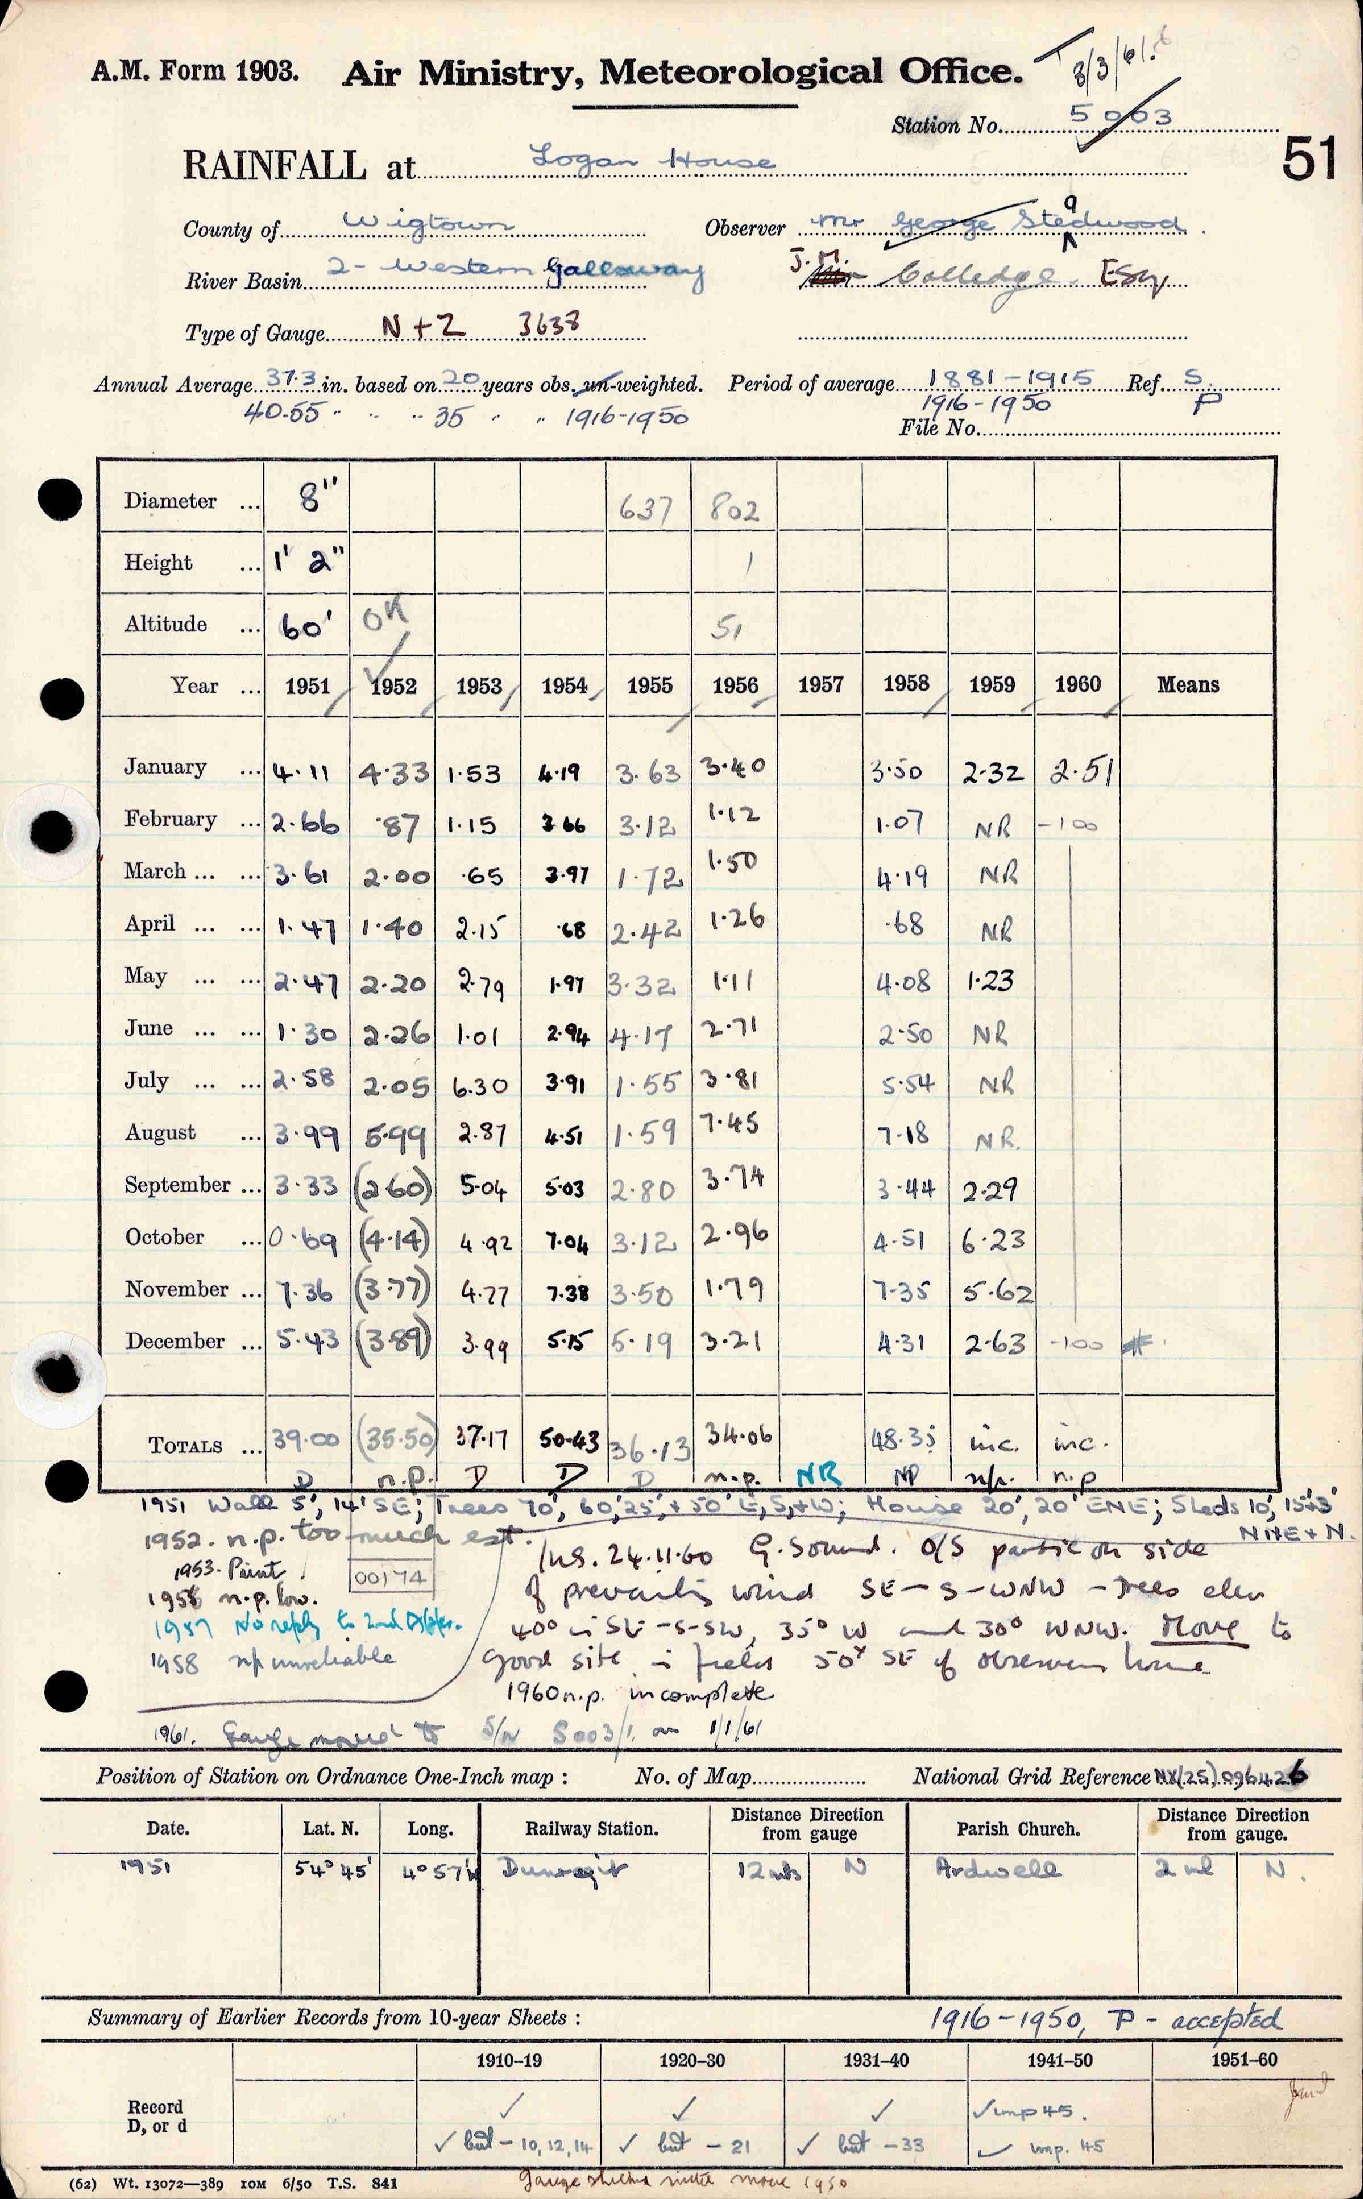 A.M. Form 1903. Air Ministry, Meteorological Office. 8/3/61.
Station No. 5003
51
RAINFALL at Logan House
County of Wigtown Observer Mr George Stedwood.
River Basin 2 - Western Galloway J.M. Colledge. Esq
Type of Gauge N+Z 3638
Annual Average 37.3 in. based on 20 years obs. un-weighted. Period of average 1881-1915 Ref. S.
40.55 " " " 35 " " 1916-1950 1916-1950 P
File No.
Diameter ... 8" 637 802
Height ... 1' 2" 1
Altitude ... 60' OK 51
Year ... 1951 1952 1953 1954 1955 1956 1957 1958 1959 1960 Means
January ... 4.11 4.33 1.53 4.19 3.63 3.40 3.50 2.32 2.51
February ... 2.66 .87 1.15 3.66 3.12 1.12 1.07 NR -100
March ... ... 3.61 2.00 .65 3.97 1.72 1.50 4.19 NR
April ... ... 1.47 1.40 2.15 .68 2.42 1.26 .68 NR
May ... ... 2.47 2.20 2.79 1.97 3.32 1.11 4.08 1.23
June ... ... 1.30 2.26 1.01 2.94 4.17 2.71 2.50 NR
July ... ... 2.58 2.05 6.30 3.91 1.55 3.81 5.54 NR
August ... 3.99 5.99 2.87 4.51 1.59 7.45 7.18 NR.
September ... 3.33 (2.60) 5.04 5.03 2.80 3.74 3.44 2.29
October ... 0.69 (4.14) 4.92 7.04 3.12 2.96 4.51 6.23
November ... 7.36 (3.77) 4.77 7.38 3.50 1.79 7.35 5.62
December ... 5.43 (3.89) 3.99 5.15 5.19 3.21 4.31 2.63 -100 #.
TOTALS ... 39.00 (35.50) 37.17 50.43 36.13 34.06 48.35 inc. inc.
D n.p. D D D n.p. NR NP n.p. n.p
1951 Wall 5', 14' SE; Trees 70', 60', 25', + 50' E, S, + W; House 20', 20' ENE; Sheds 10', 15+3'
NNE + N.
1952. n.p. too much est.
Ins. 24.11.60 G. Sound. O/S partic on side
1953. Paint
00174
of prevailing wind SE-S-WNW - Trees elev
1956 n.p. low.
1957 No reply to 2nd
40° in SE-S-SW, 35° W and 30° WNW. Move to
1958 np unreliable
good site in field 50x SE of observers house
1960 n.p. incomplete
1961. Gauge moved to S/N 5003/1 on 1/1/61
Position of Station on Ordnance One-Inch map : No. of Map National Grid Reference NX(25).096426
Date. Lat. N. Long. Railway Station. Distance from gauge Direction Parish Church. Distance from gauge. Direction
1951 54° 45' 4° 57'W Dunragit 12 mls N Ardwell 2 ml N.
Summary of Earlier Records from 10-year Sheets : 1916-1950, P - accepted
1910-19 1920-30 1931-40 1941-50 1951-60
Record D, or d ✓ ✓ ✓ ✓ imp 45.
✓ but - 10, 12, 14 ✓ but - 21 ✓ but - 33 ✓ imp. 45
(62) Wt. 13072—389 10M 6/50 T.S. 841 Gauge 1950